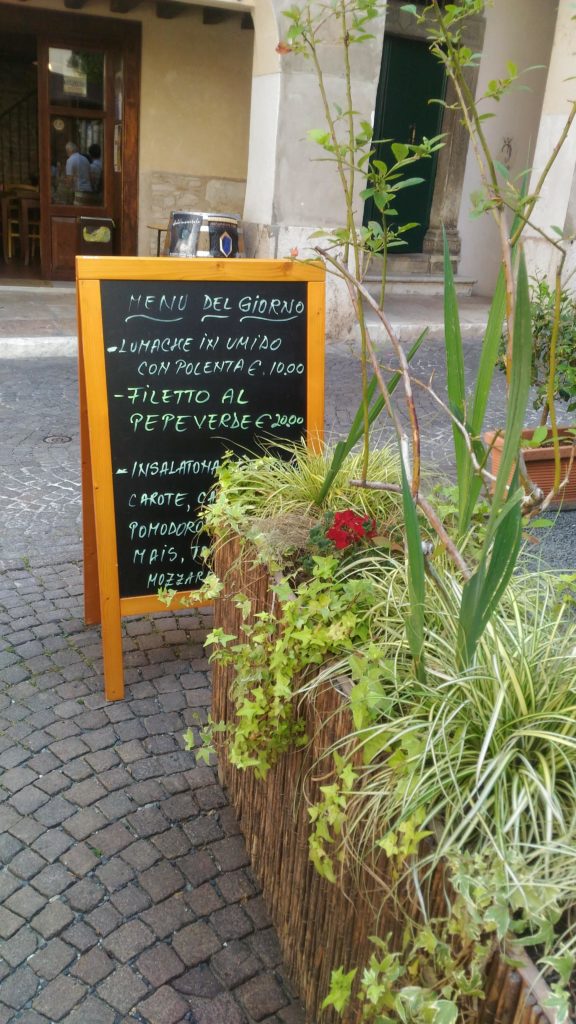 MENU DEL GIORNO
-LUMACHE IN UMIDO
CON POLENTA €. 10,00
-FILETTO AL
PEPEVERDE € 20,00
-INSALATONA
CAROTE,
POMODORO
MAIS,